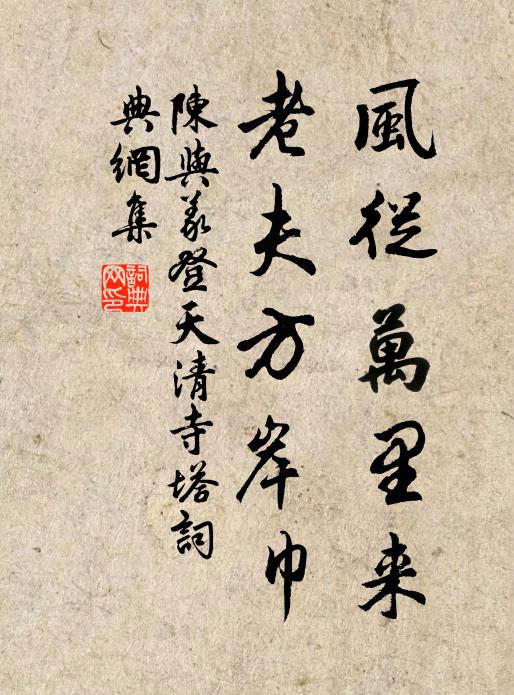 風從萬里来
老夫方岸巾
陳與義登天清寺塔詞
典網集
詞典
网印